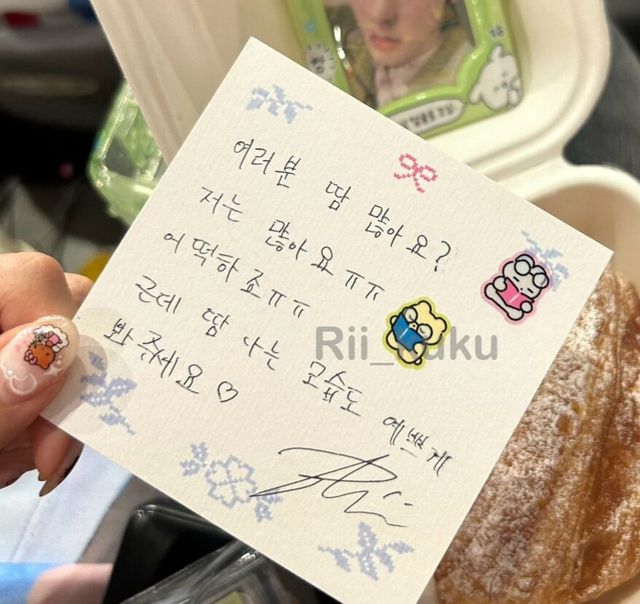 여러분 땀 많아요?
저는 많아요ㅠㅠ
어떡하죠ㅠㅠ
근데 땀 나는 모습도 예쁘게
봐주세요♡
Rii_